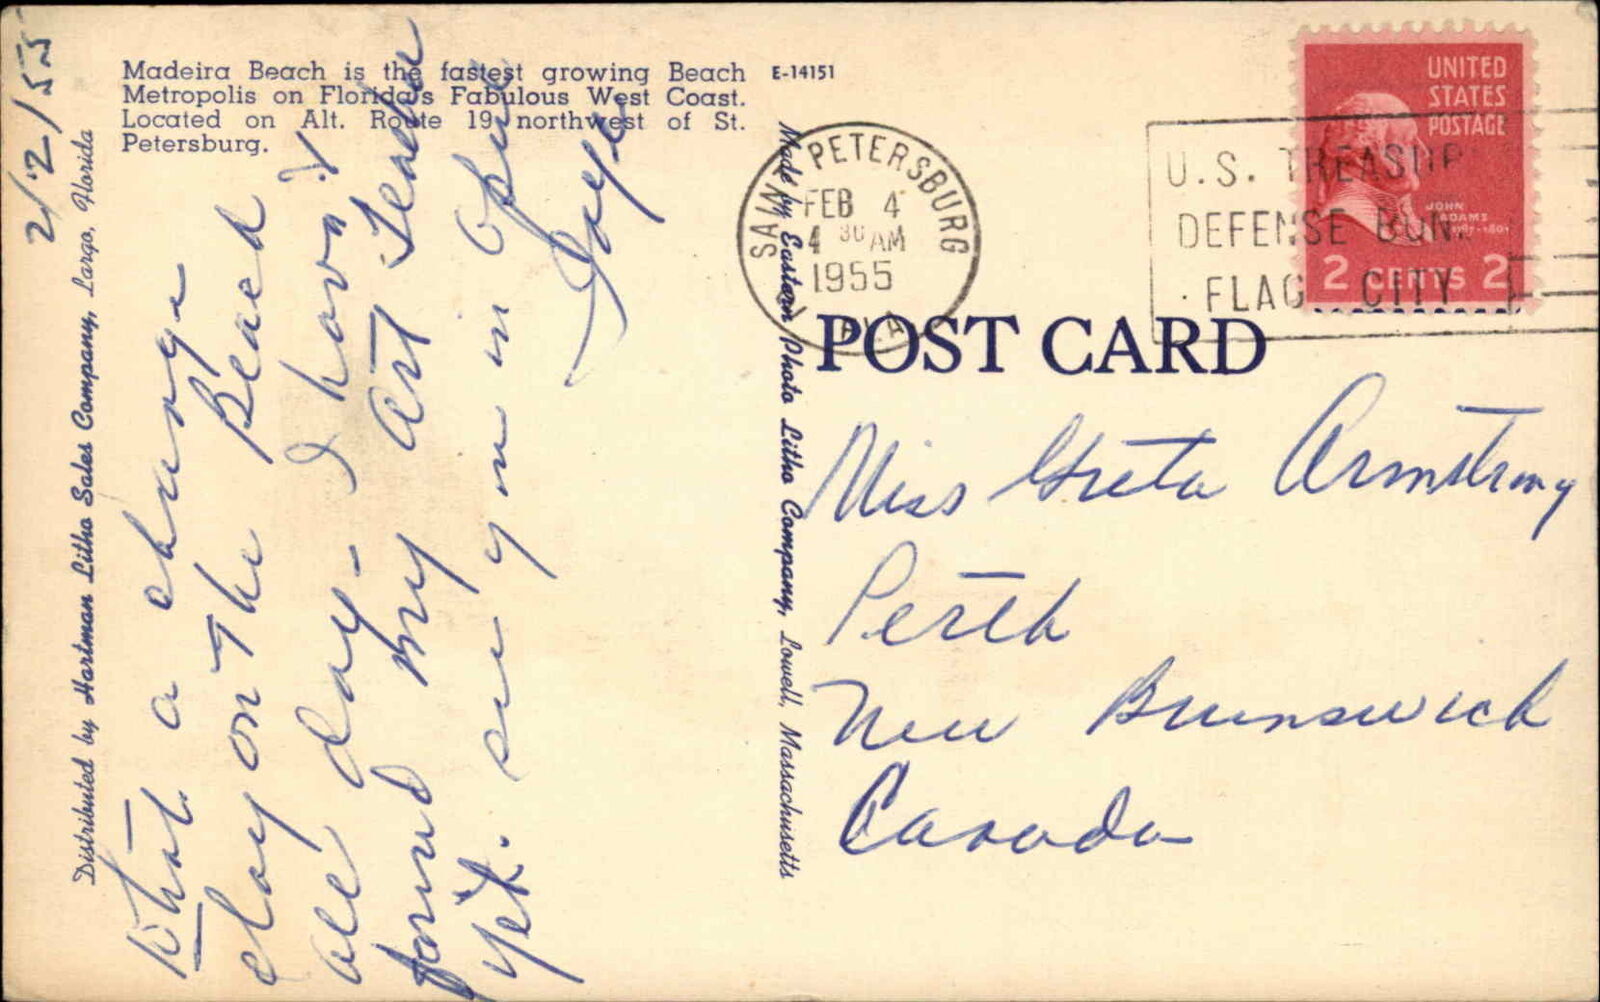 2/2/55
Madeira Beach is the fastest growing Beach
Metropolis on Florida's Fabulous West Coast.
Located on Alt. Route 19, northwest of St.
Petersburg.
E-14151
Distributed by Hartman Litho Sales Company, Largo, Florida
What a change
on The Beach
all day - I havn't
found my Art Teacher
yet. see you in
Made by Eastern Photo Litho Company, Lowell, Massachusetts
SAINT PETERSBURG
FEB 4
4 30 AM
1955
FLA.
U.S. TREASUR
DEFENSE BON
FLAG CITY
UNITED
STATES
POSTAGE
JOHN
ADAMS
2 CENTS 2
POST CARD
Miss Greta Armstrong
Perth
New Brunswick
Canada